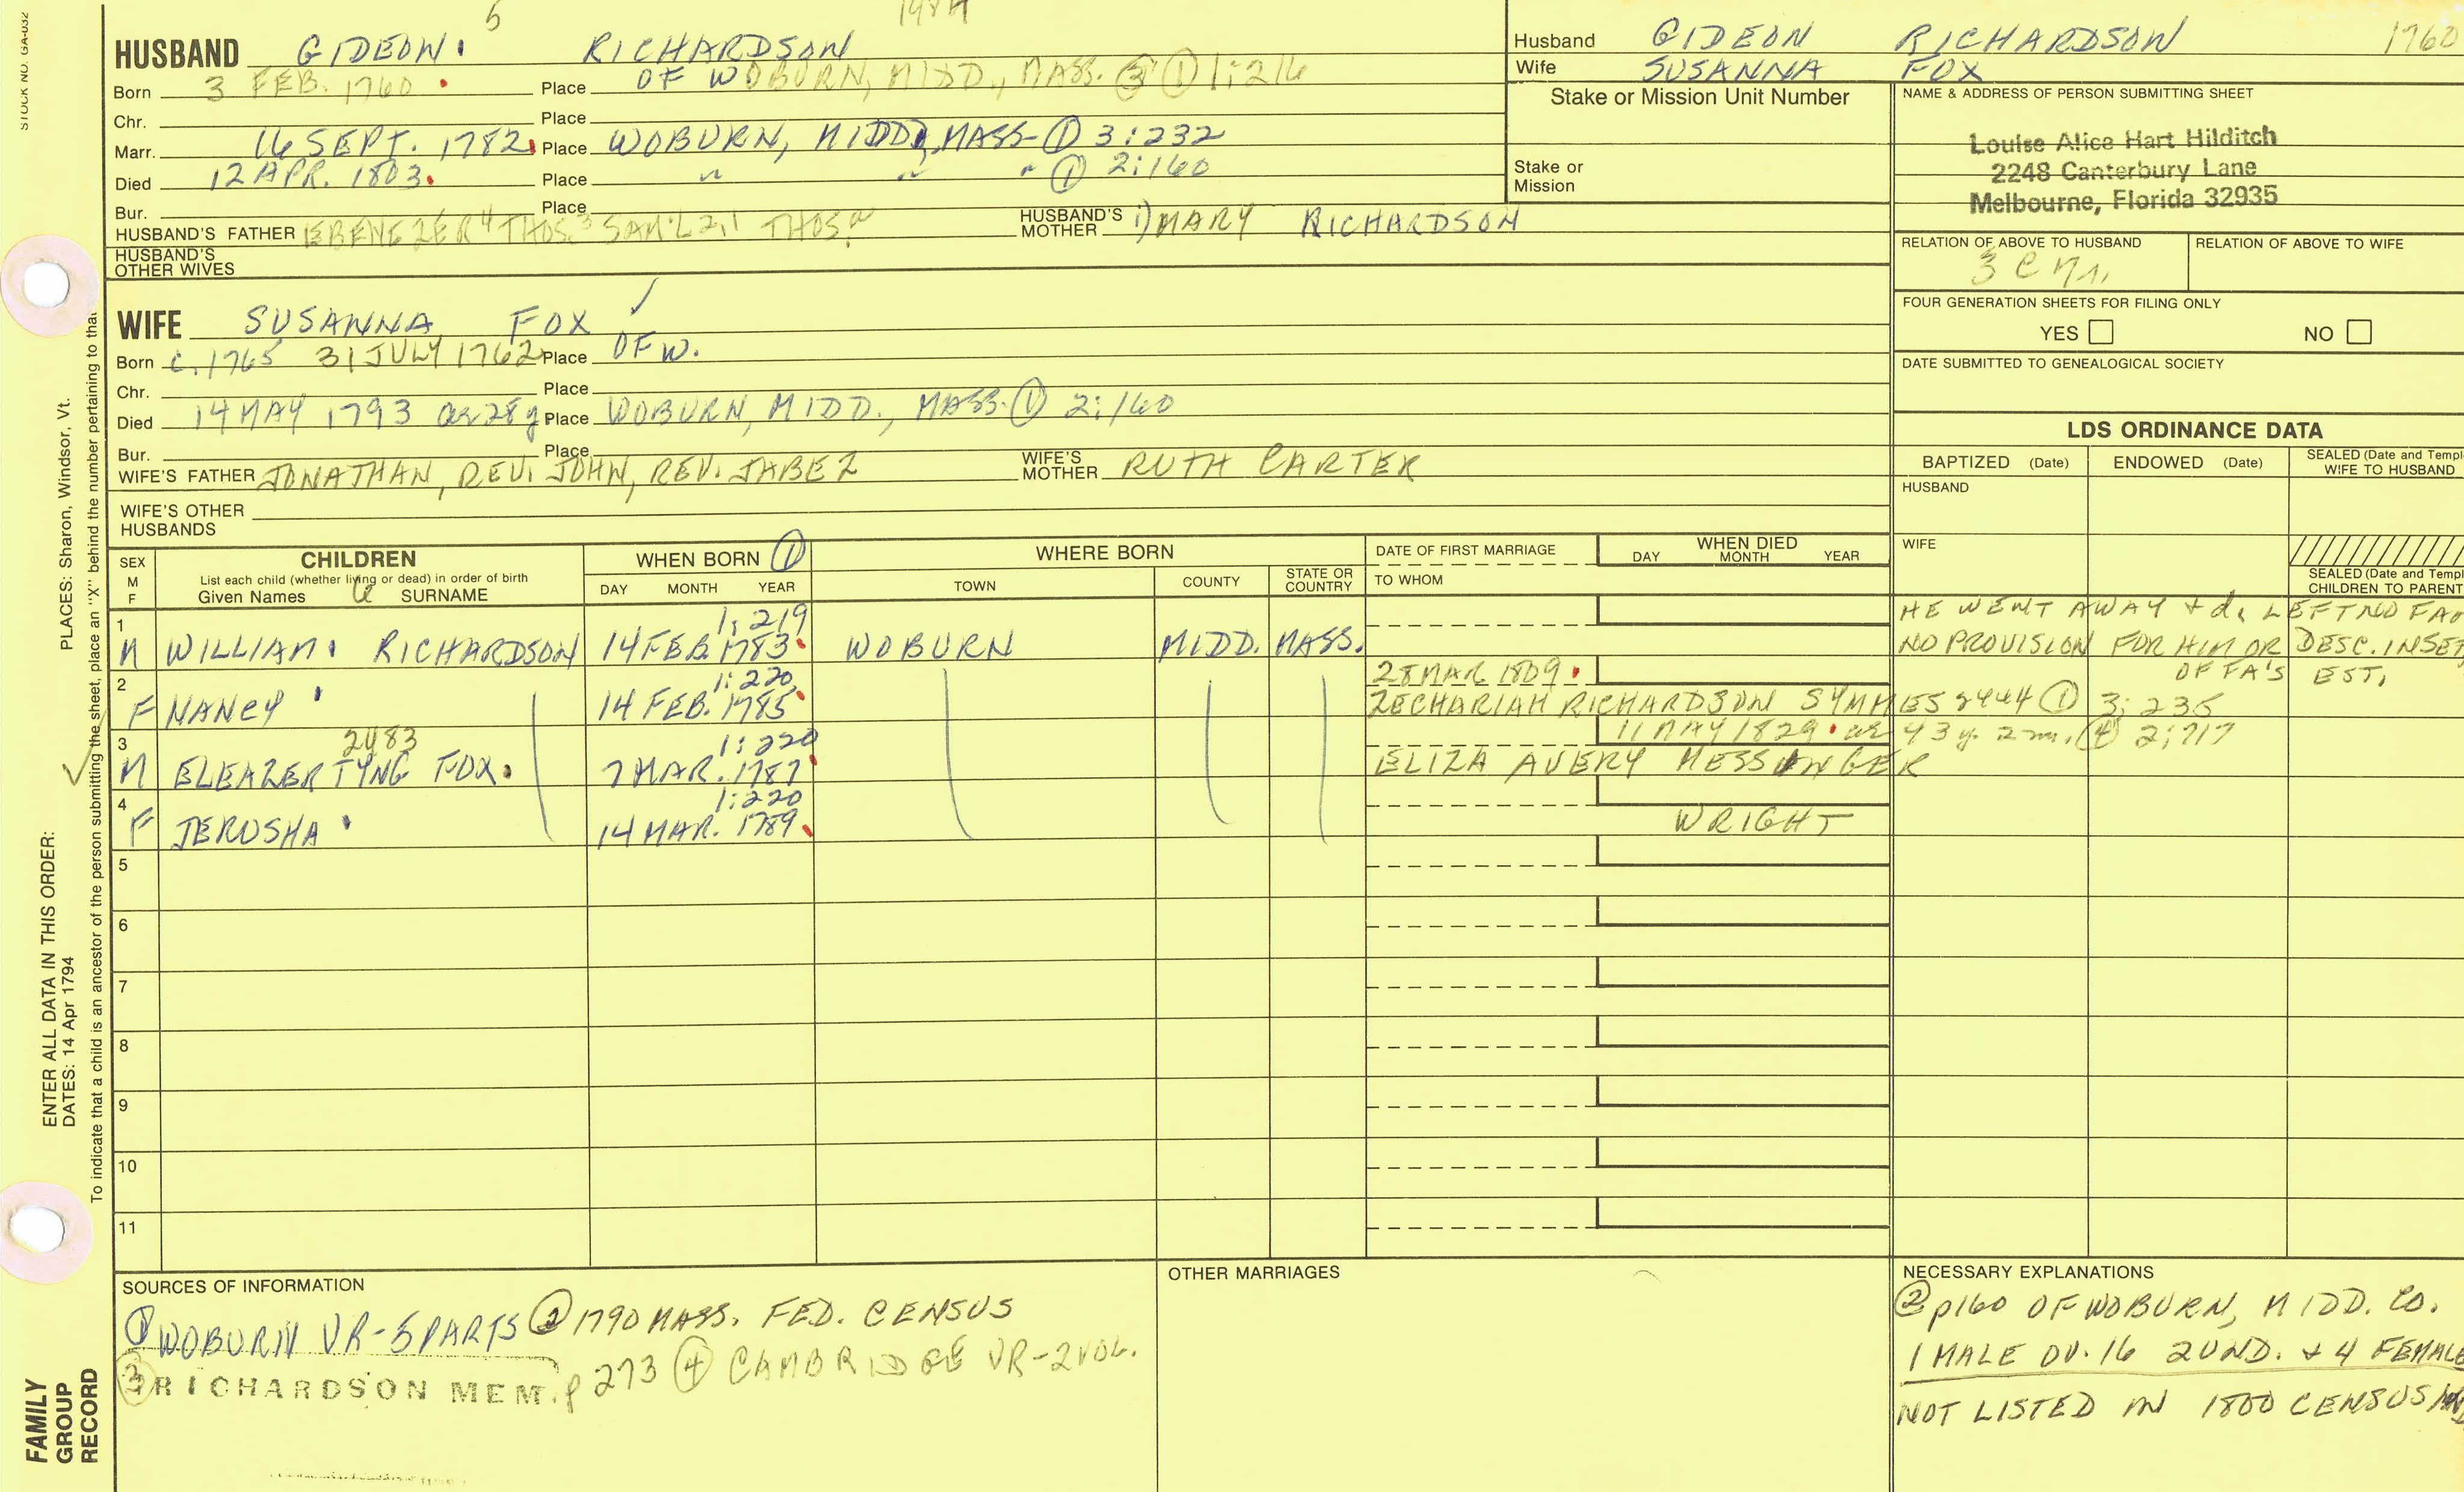 STOCK NO. GA-032
5
HUSBAND GIDEON RICHARDSON
Born 3 FEB. 1760 Place OF WOBURN, MIDD., MASS. ③ ① 1:216
Chr. Place
Marr. 16 SEPT. 1782 Place WOBURN, MIDD, MASS- ① 3:232
Died 12 APR. 1803. Place " " " ① 2:160
Bur. Place
HUSBAND'S FATHER EBENEZER 4 THOS. 3 SAM'L 2,1 THOS.
HUSBAND'S MOTHER 1) MARY RICHARDSON
HUSBAND'S OTHER WIVES
WIFE SUSANNA FOX ✓
Born C. 1765 31 JULY 1762 Place OF W.
Chr. Place
Died 14 MAY 1793 ae 28 y Place WOBURN, MIDD., MASS. ① 2:160
Bur. Place
WIFE'S FATHER JONATHAN, REV. JOHN, REV. JABEZ
WIFE'S MOTHER RUTH CARTER
WIFE'S OTHER HUSBANDS
Husband GIDEON RICHARDSON 1760
Wife SUSANNA FOX
Stake or Mission Unit Number
Stake or Mission
NAME & ADDRESS OF PERSON SUBMITTING SHEET
Louise Alice Hart Hilditch
2248 Canterbury Lane
Melbourne, Florida 32935
RELATION OF ABOVE TO HUSBAND
RELATION OF ABOVE TO WIFE
FOUR GENERATION SHEETS FOR FILING ONLY
YES NO
DATE SUBMITTED TO GENEALOGICAL SOCIETY
LDS ORDINANCE DATA
BAPTIZED (Date) ENDOWED (Date) SEALED (Date and Templ
WIFE TO HUSBAND
HUSBAND
WIFE
SEALED (Date and Templ
CHILDREN TO PARENT
SEX M F
CHILDREN
List each child (whether living or dead) in order of birth
Given Names SURNAME
WHEN BORN ①
DAY MONTH YEAR
WHERE BORN
TOWN COUNTY STATE OR COUNTRY
DATE OF FIRST MARRIAGE
TO WHOM
WHEN DIED
DAY MONTH YEAR
1 M WILLIAM RICHARDSON 1:219 14 FEB 1783 WOBURN MIDD. MASS.
HE WENT AWAY + d. LEFT NO FA
NO PROVISION FOR HIM OR DESC. IN SET
OF FA'S EST.
2 F NANCY 1:220 14 FEB. 1785 28 MAR 1809
ZECHARIAH RICHARDSON SYMMES 2444 ① 3:235
3 M 2483 ELEAZER TYNG FOX 1:220 7 MAR. 1787 11 MAY 1829 ae 43 y. 2 m. ④ 2:717
ELIZA AVERY MESSINGER
4 F JERUSHA 1:220 14 MAR. 1789 WRIGHT
5
6
7
8
9
10
11
SOURCES OF INFORMATION
① WOBURN VR-5 PARTS ② 1790 MASS. FED. CENSUS
③ RICHARDSON MEM. p 273 ④ CAMBRIDGE VR-2 VOL.
OTHER MARRIAGES
NECESSARY EXPLANATIONS
② p160 OF WOBURN, MIDD. CO.
1 MALE OV. 16 2 UND. + 4 FEMALE
NOT LISTED IN 1800 CENSUS
ENTER ALL DATA IN THIS ORDER:
DATES: 14 Apr 1794
PLACES: Sharon, Windsor, Vt.
To indicate that a child is an ancestor of the person submitting the sheet, place an "X" behind the number pertaining to that
FAMILY
GROUP
RECORD